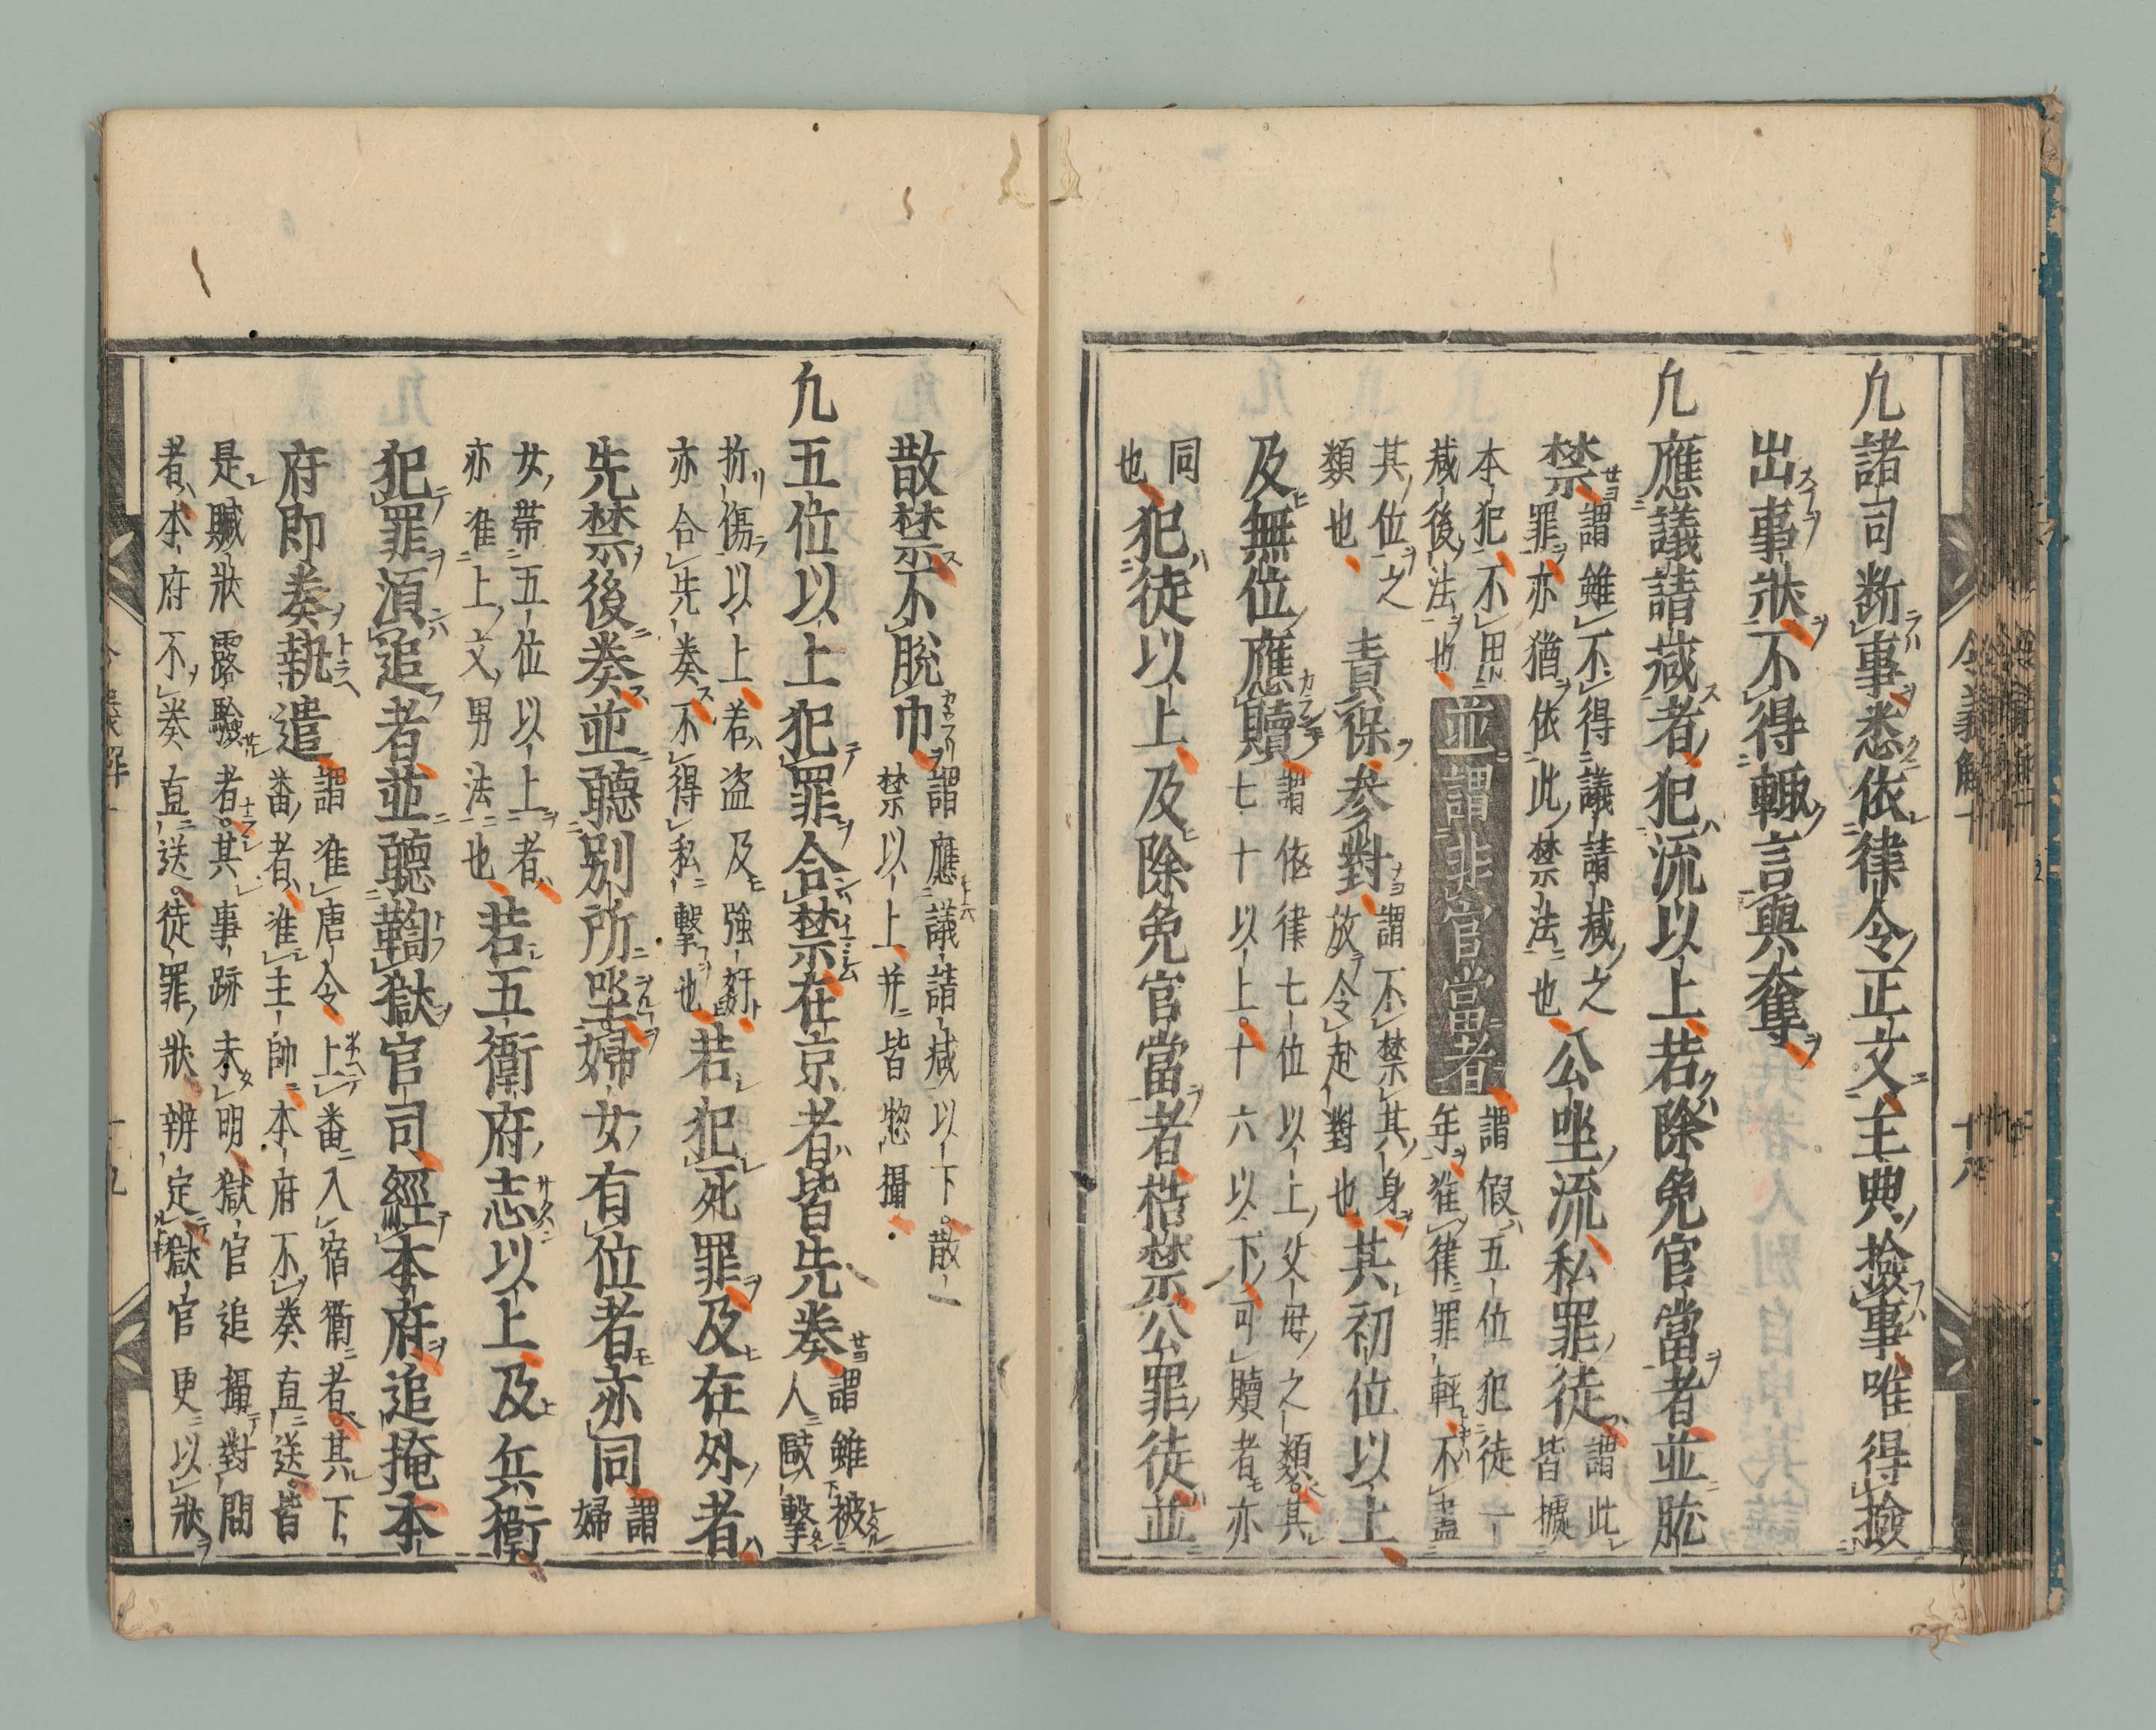 凢諸司断事悉依律令正文主典撿事唯得撿
出事狀不得輙言與奪
凢應議請减者犯流以上若除免官當者並肱
禁謂雖不得議請减之
罪亦猶依此禁法也公坐流私罪徒謂此
皆據
本犯不
减後法也並謂非官當者謂假五位犯徒一
年准律罪輕不盡
其位之
類也責保参對謂不禁其身
放令赴對也其初位以上
及無位應贖謂依律七位以上父母之類其
七十以上十六以下可贖者亦
同
也犯徒以上及除免官當者梏禁公罪徒並
散禁不脱巾謂應議請减以下散一
禁以上并皆惣攝
凢五位以上犯罪合禁在京者皆先奏謂雖被
人敺擊
折傷以上若盗及強姧
亦合先奏不得私擊也若犯死罪及在外者
先禁後奏並聽别所坐婦女有位者亦同謂
婦
女帶五位以上者
亦准上文男法也若五衛府志以上及兵衛
犯罪湏追者並聽鞫獄官司經本府追掩本
府即奏執遣謂准唐令上番入宿衛者其下
番者准主帥本府不奏直送皆
是贓狀露驗者其事跡未明獄官追攝對問
者本府不奏直送徒罪狀辨定獄官更以狀
令義解十
十八